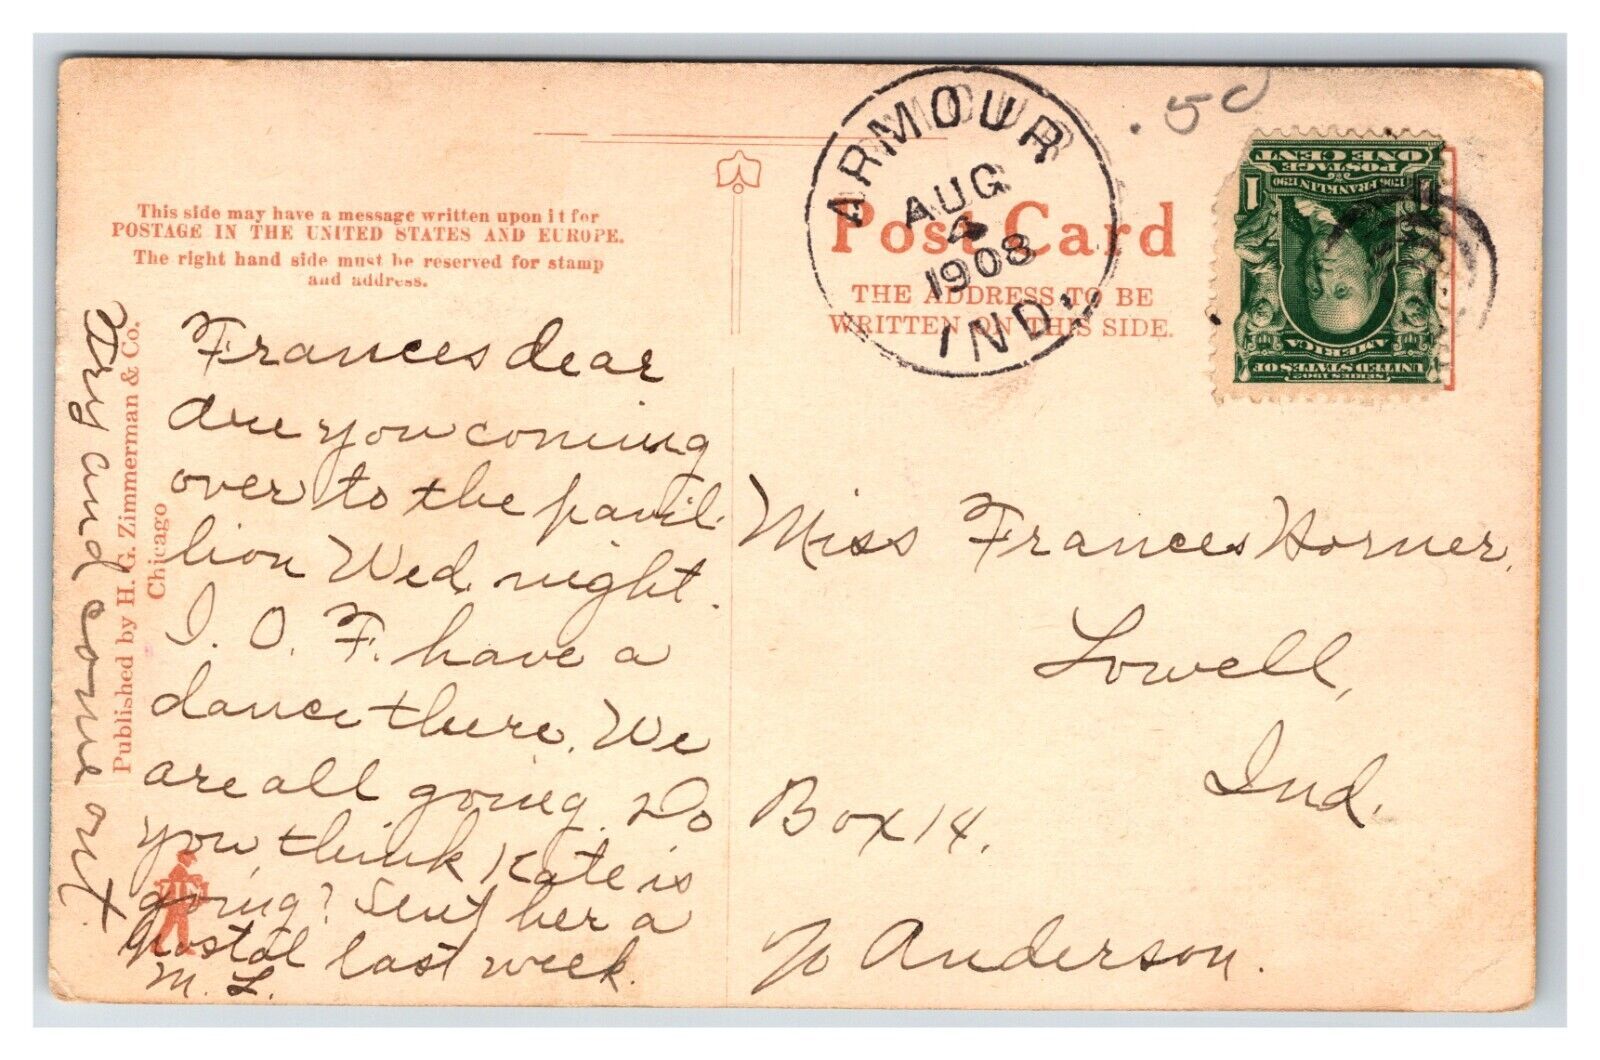 This side may have a message written upon it for
POSTAGE IN THE UNITED STATES AND EUROPE.
The right hand side must be reserved for stamp
and address.
Post Card
THE ADDRESS TO BE
WRITTEN ON THIS SIDE.
ARMOUR
AUG
4
1908
IND.
.50
POSTAGE
ONE CENT
1706 FRANKLIN 1790
1
AMERICA
UNITED STATES OF
SERIES 1902
Frances dear
Are you coming
over to the pavil-
lion Wed. night.
I. O. F. have a
dance there. We
are all going. Do
you think Kate is
going? Sent her a
postal last week.
M. L.
Try and come out.
Published by H. G. Zimmerman & Co.
Chicago
Miss Frances Horner.
Lowell,
Ind.
Box 14.
% Anderson.